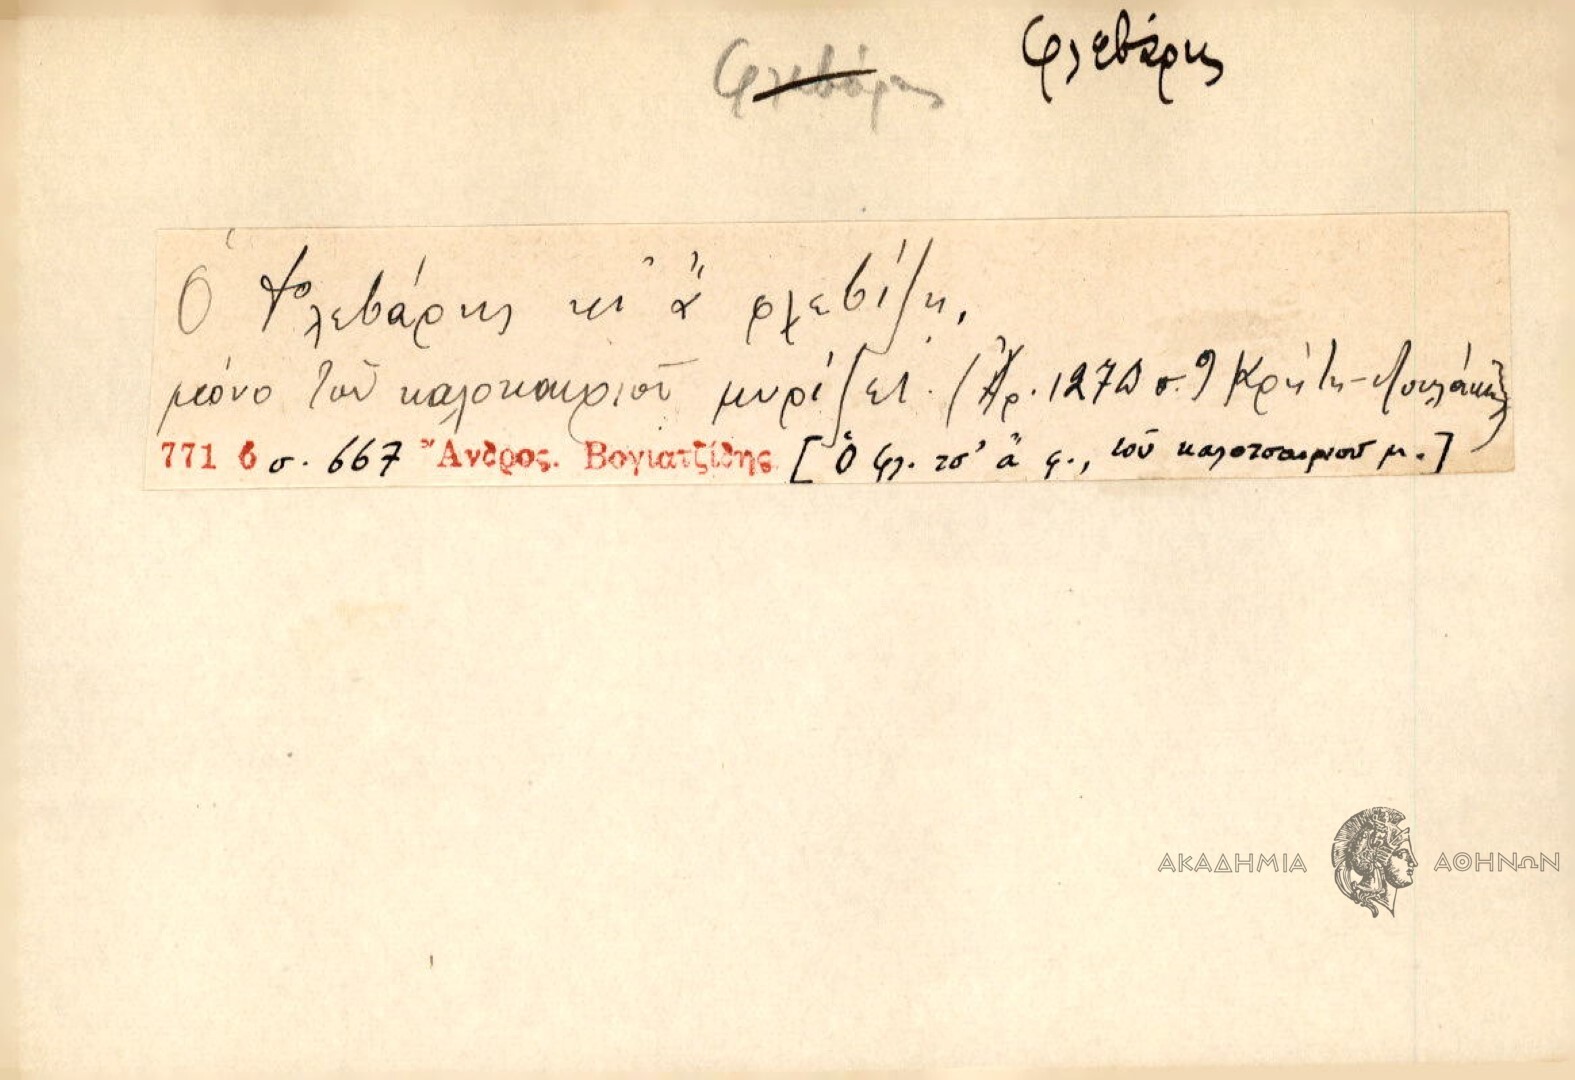 Φλεβάρης Φλεβάρης
Ὁ Φλεβάρης κι ἂ φλεβίζῃ,
μόνο τοῦ καλοκαιριοῦ μυρίζει. (Ἀρ. 1270 σ. 9 Κρήτη-
771 6 σ. 667 Ἄνδρος. Βογιατζίδης [Ὁ Φλ. τσ' ἂ φ., τοῦ καλοτσαιριοῦ μ.]
ΑΚΑΔΗΜΙΑ ΑΘΗΝΩΝ